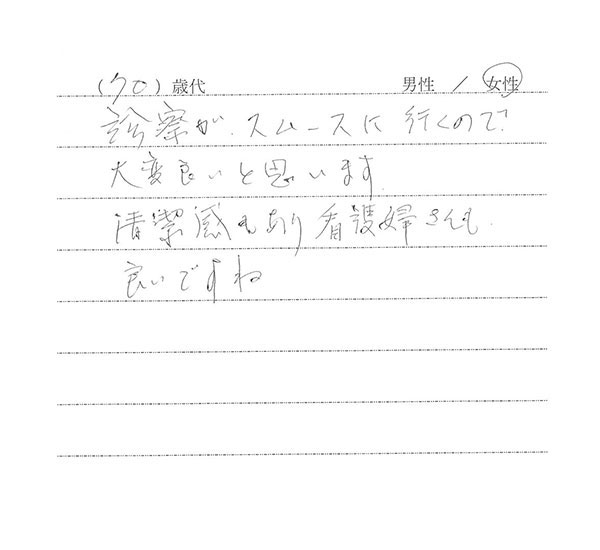 (70)歳代 男性 / 女性
診察が、スムースに行くので
大変良いと思います
清潔感もあり看護婦さんも
良いですね